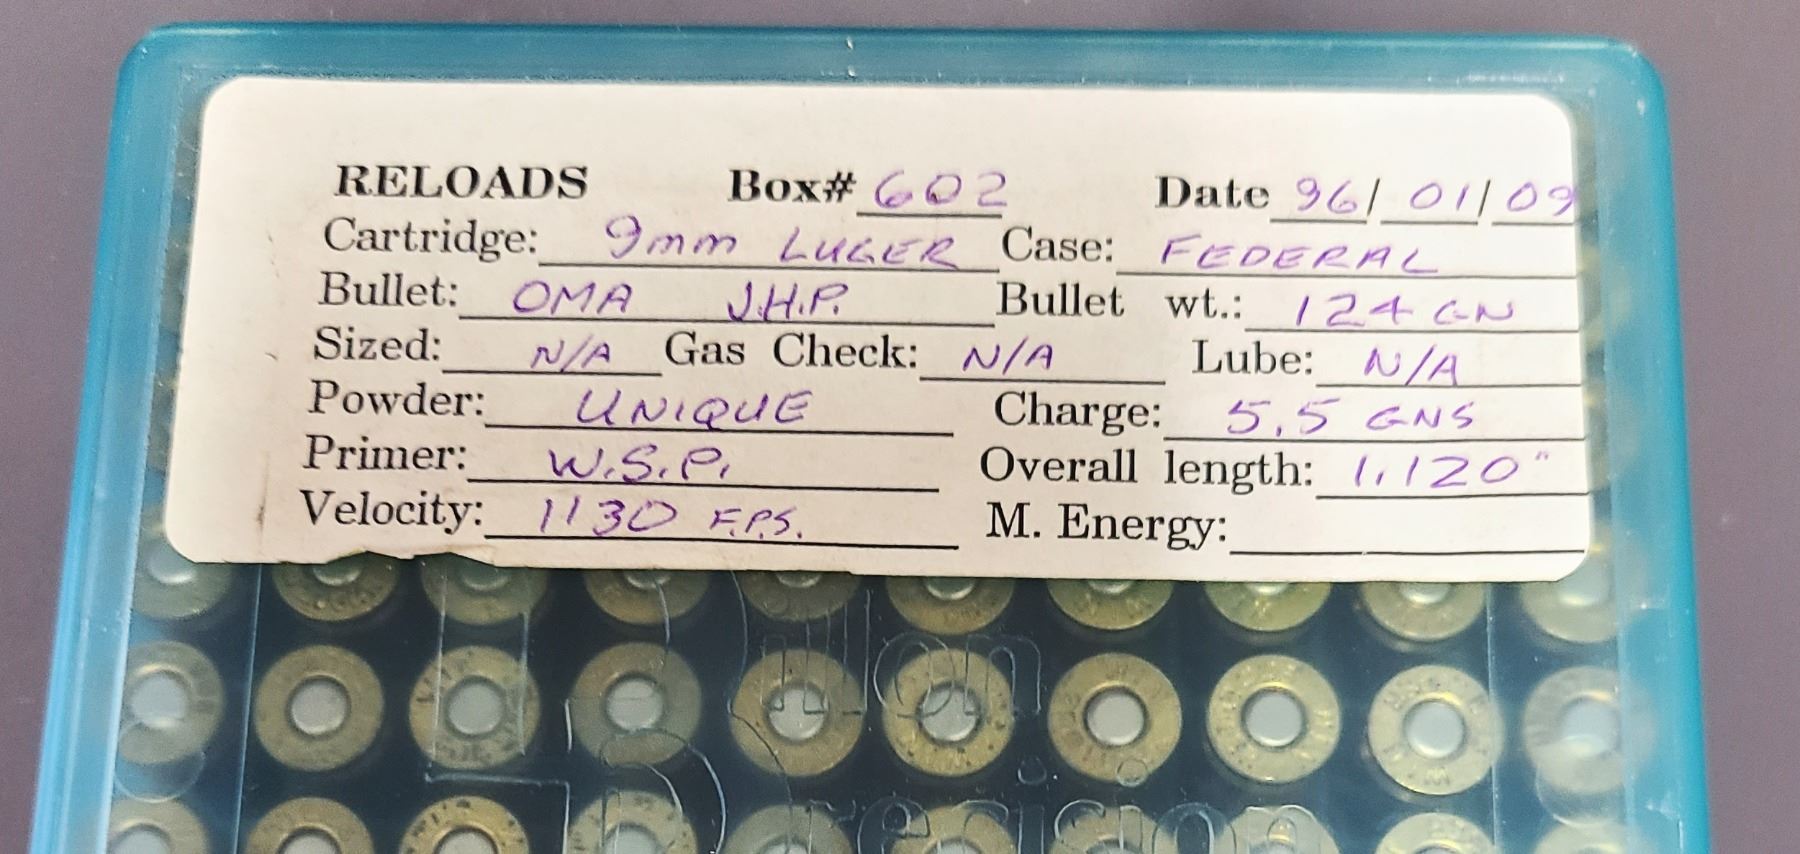 RELOADS Box# 602 Date 96/01/09
Cartridge: 9mm LUGER Case: FEDERAL
Bullet: OMA J.H.P. Bullet wt.: 124 GN
Sized: N/A Gas Check: N/A Lube: N/A
Powder: UNIQUE Charge: 5.5 GNS
Primer: W.S.P. Overall length: 1.120"
Velocity: 1130 F.P.S. M. Energy: